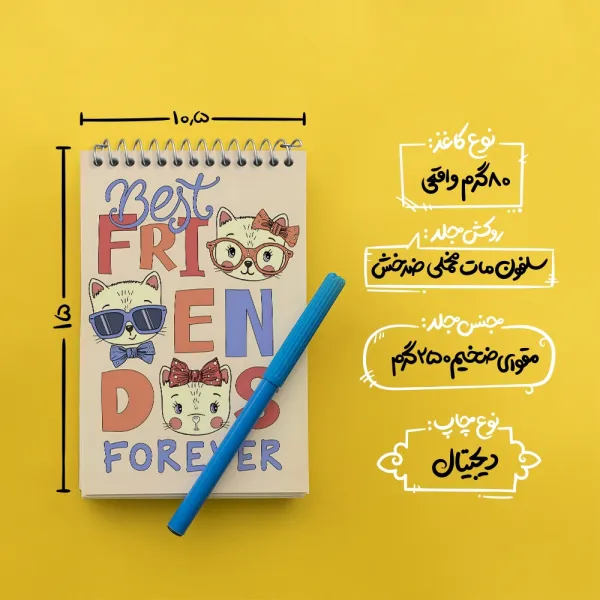 ۱۰٫۵
۱۵
Best
FRI
EN
DS
FOREVER
نوع کاغذ:
۸۰گرم واقعی
روکش جلد:
سلفون مات مخملی ضدخش
جنس جلد:
مقوای ضخیم ۲۵۰گرم
نوع چاپ:
دیجیتال